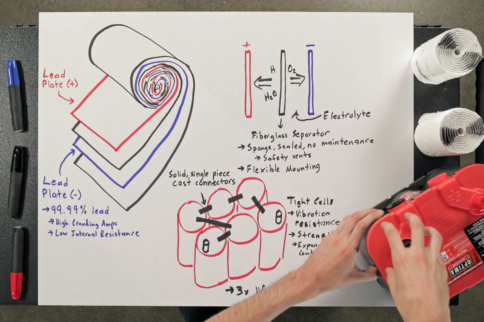 Lead
Plate (+)
Lead
Plate (-)
→ 99.99% lead
→ High Cranking Amps
→ Low Internal Resistance
+
-
H
O₂
H₂O
Electrolyte
Fiberglass Separator
→ Sponge, Sealed, no maintenance
→ Safety vents
→ Flexible Mounting
Solid, single piece
cost connectors
Tight Cells
→ Vibration
resistance
→ Stren
→ Expan
→ 3x
OPTIMA